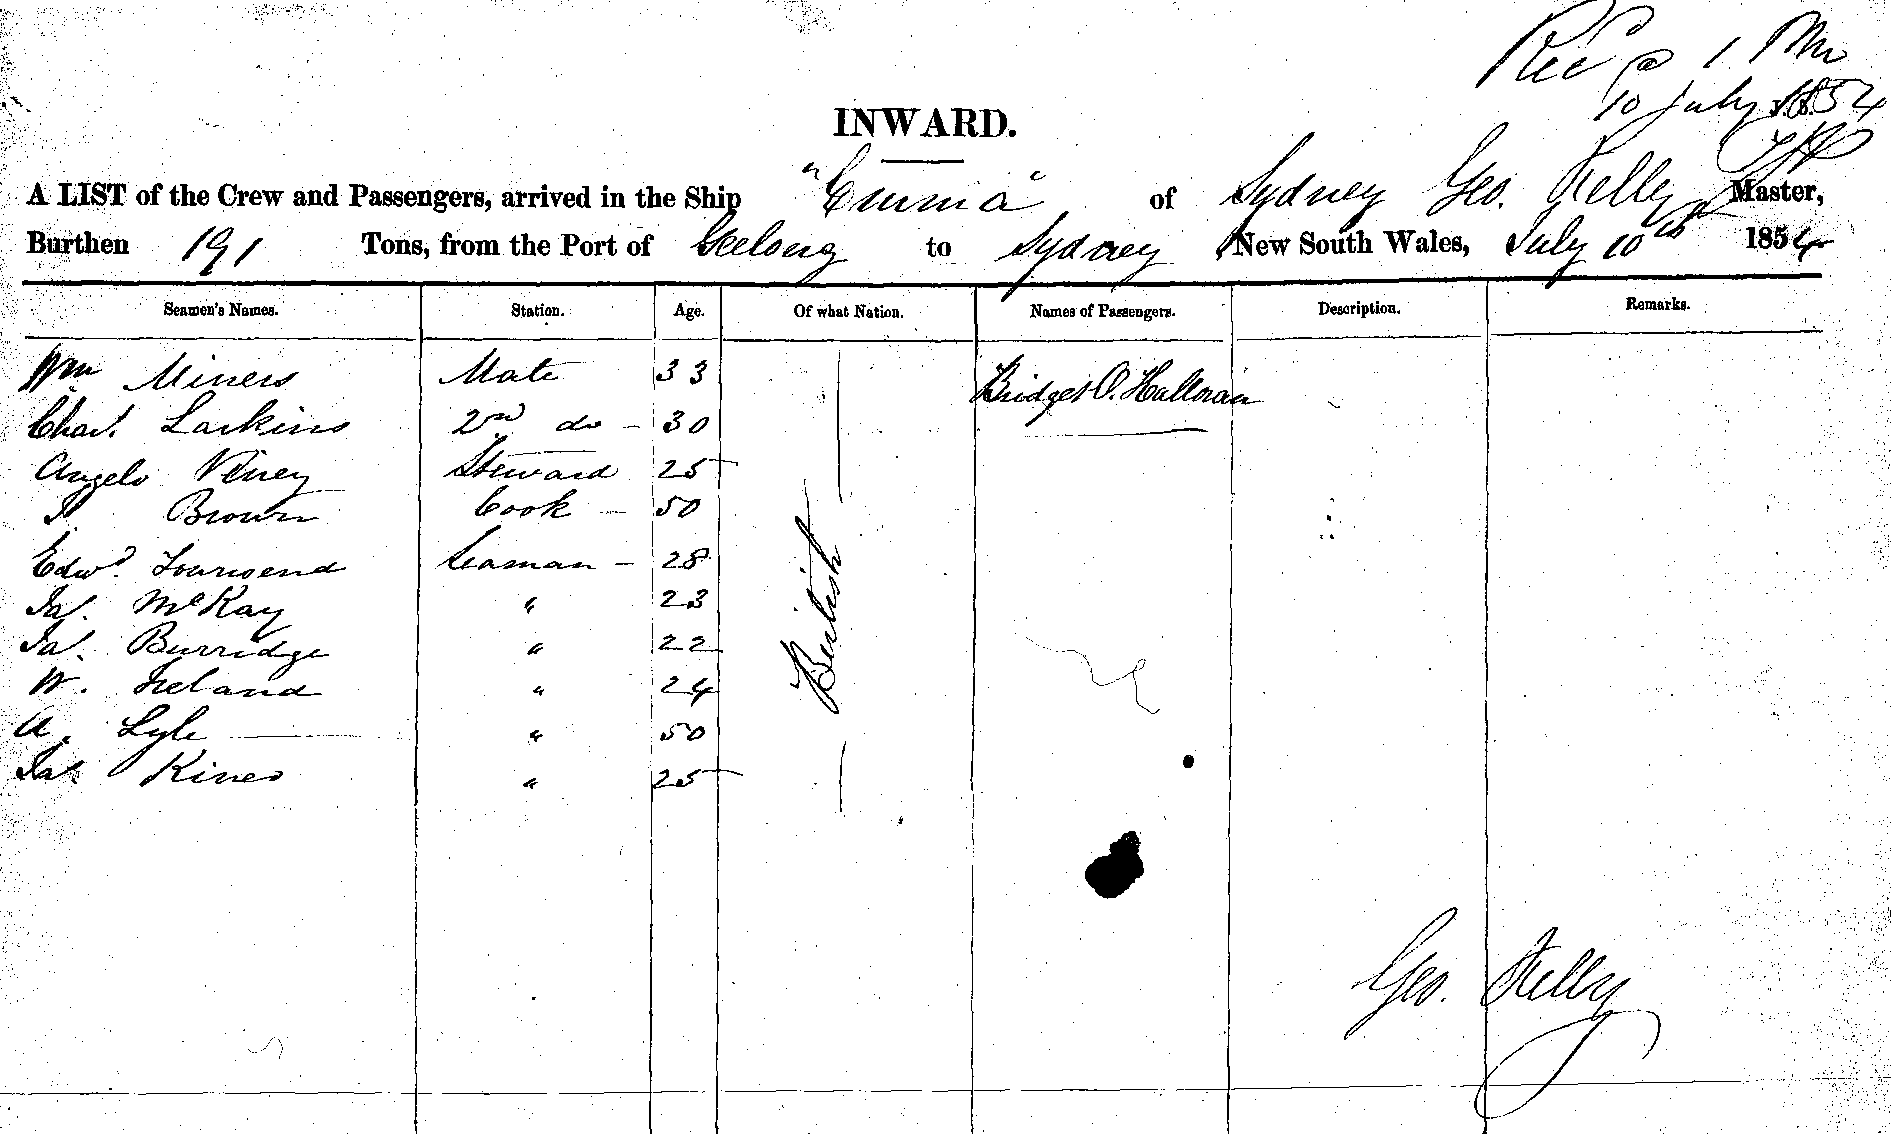 Rec @ 1 PM
10 July 1854
INWARD.
A LIST of the Crew and Passengers, arrived in the Ship "Emma" of Sydney Geo. Kelly Master,
Burthen 191 Tons, from the Port of Geelong to Sydney New South Wales, July 10th 1854
Seamen's Names. Station. Age. Of what Nation. Names of Passengers. Description. Remarks.
Wm Miners Mate 33 British Bridget O. Halloran
Chas. Larkins 2nd do - 30
Angelo Viney Steward 25
Brown Cook - 50
Edwd. Townsend Seaman - 28
Jas. McKay " 23
Jas. Burridge " 22
W. Ireland " 24
A. Lyle " 50
Jas. Kines " 25
Geo. Kelly